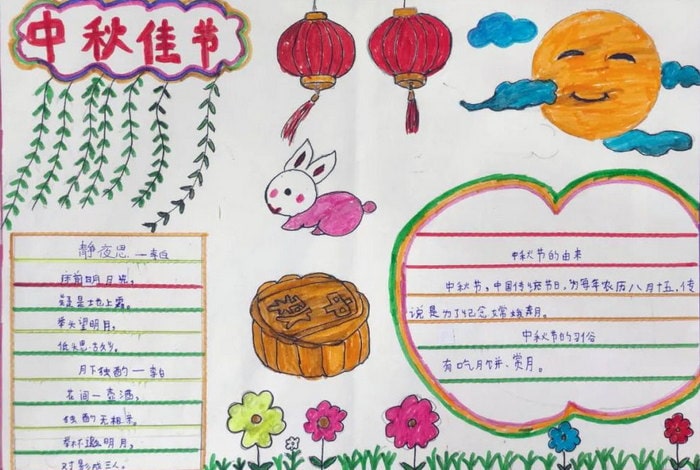 中秋佳节
静夜思 一李白
床前明月光,
疑是地上霜。
举头望明月,
低头思古乡。
月下独酌一李白
花间一壶酒,
独酌无相亲。
举杯邀明月,
对影成三人。
中秋节的由来
中秋节,中国传统节日,为每年农历八月十五,传
说是为了纪念嫦娥
中秋节的习俗
有吃月饼、赏月。